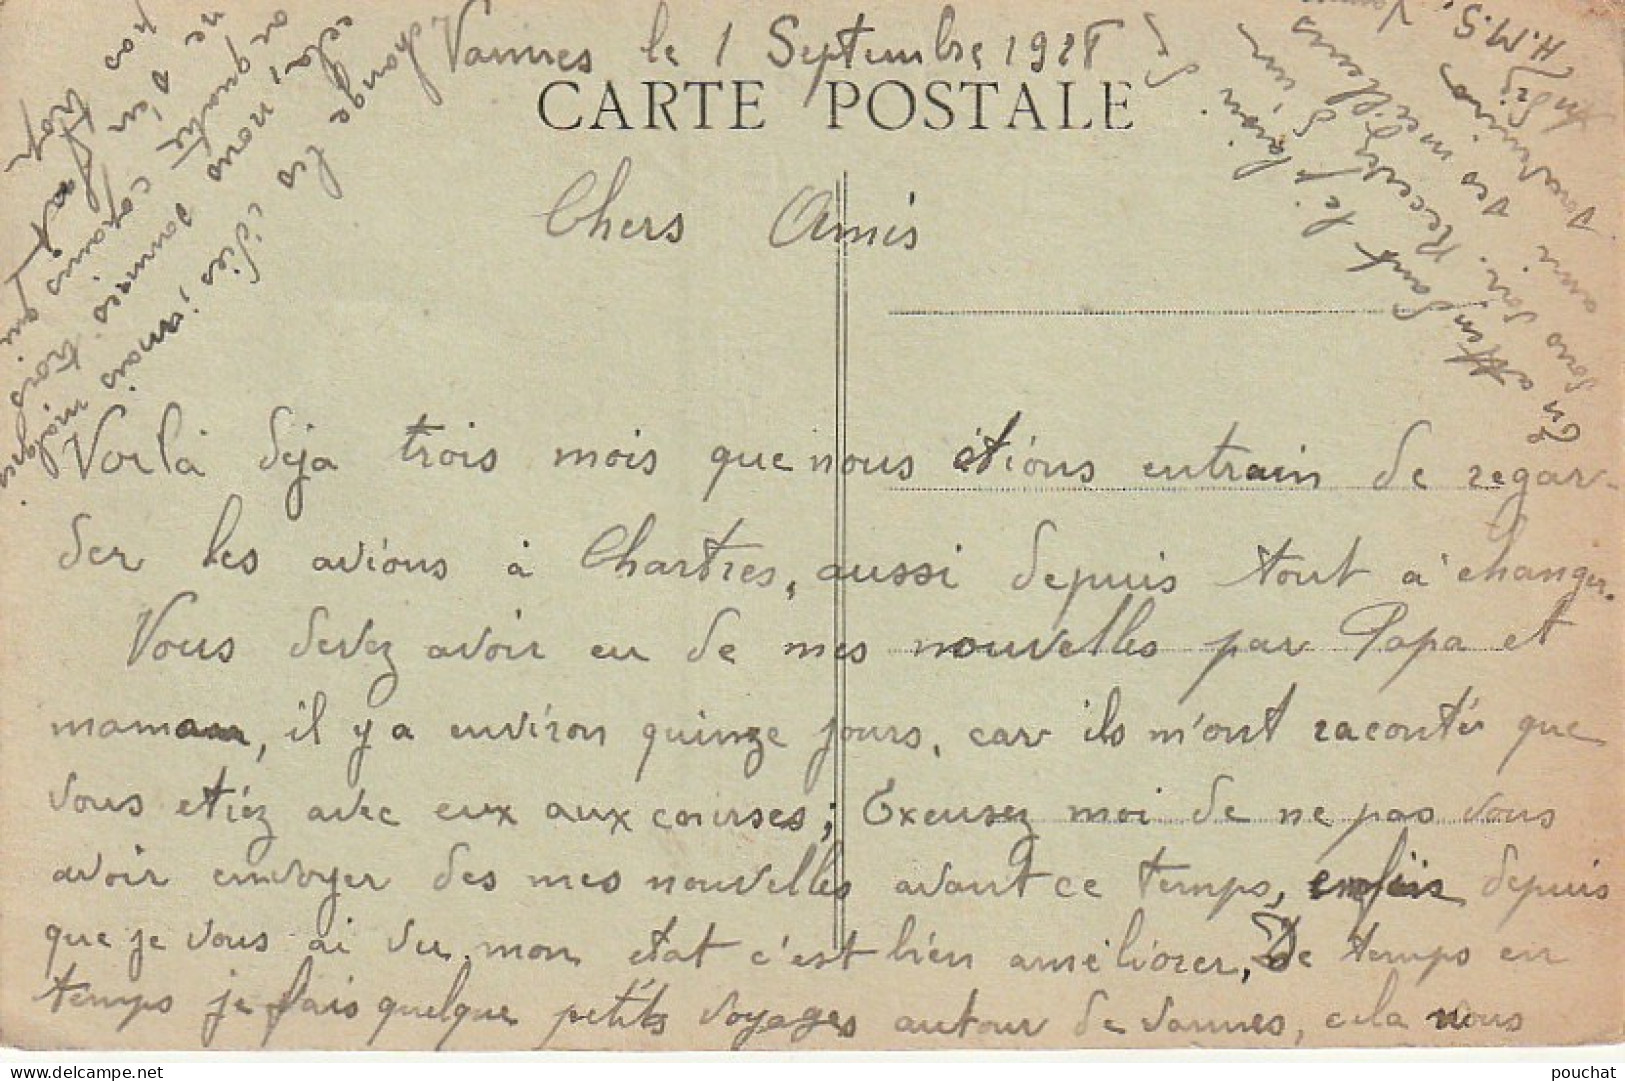 Vannes le 1 Septembre 1928
CARTE POSTALE
Chers Amis
Voila deja trois mois que nous étions entrain de regar-
der les avions à Chartres, aussi depuis tout a changer.
Vous devez avoir eu de mes nouvelles par Papa et
maman, il y a environ quinze jours, car ils m'ont raconté que
vous etiez avec eux aux courses; Excusez moi de ne pas vous
avoir envoyer des mes nouvelles avant ce temps, enfin depuis
que je vous ai vu mon etat c'est bien améliorer, De temps en
temps je fais quelque petits voyages autour de Vannes, cela nous
change les idées, mais malgré
cela, nous sommes trois
ne s'en
pas trop
En attendant
sous soir. Recevez
ami des meilleurs
H.M.S.
pouchat